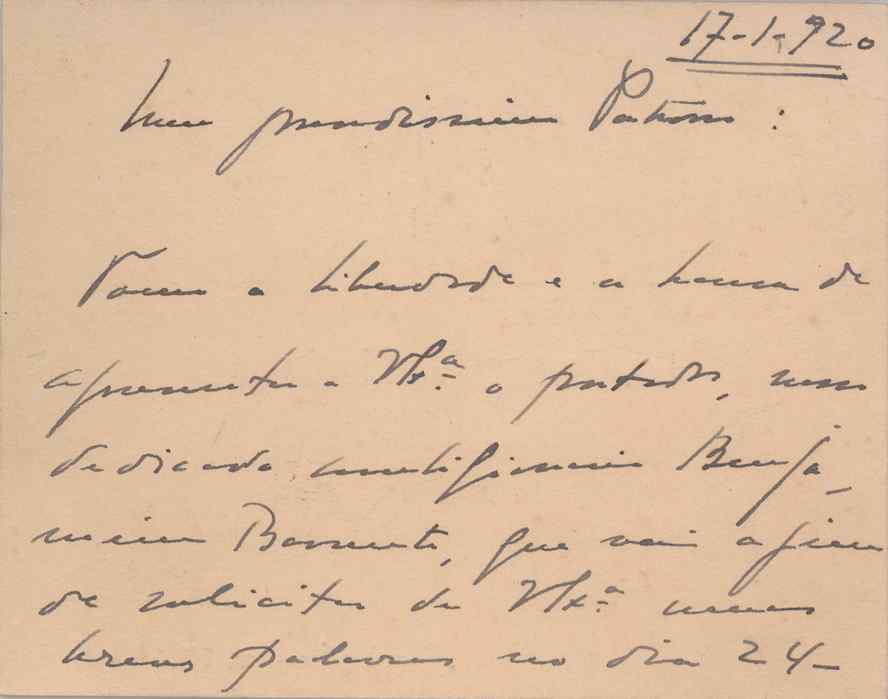 17-1-920
Meu grandissimo Patrono:
Tomo a liberdade e a honra de
apresentar a V. Ex.ª o portador, nosso
dedicado correligionario Benja-
mim Barreto, que vai afim
de solicitar de V. Ex.ª umas
breves palavras no dia 24-